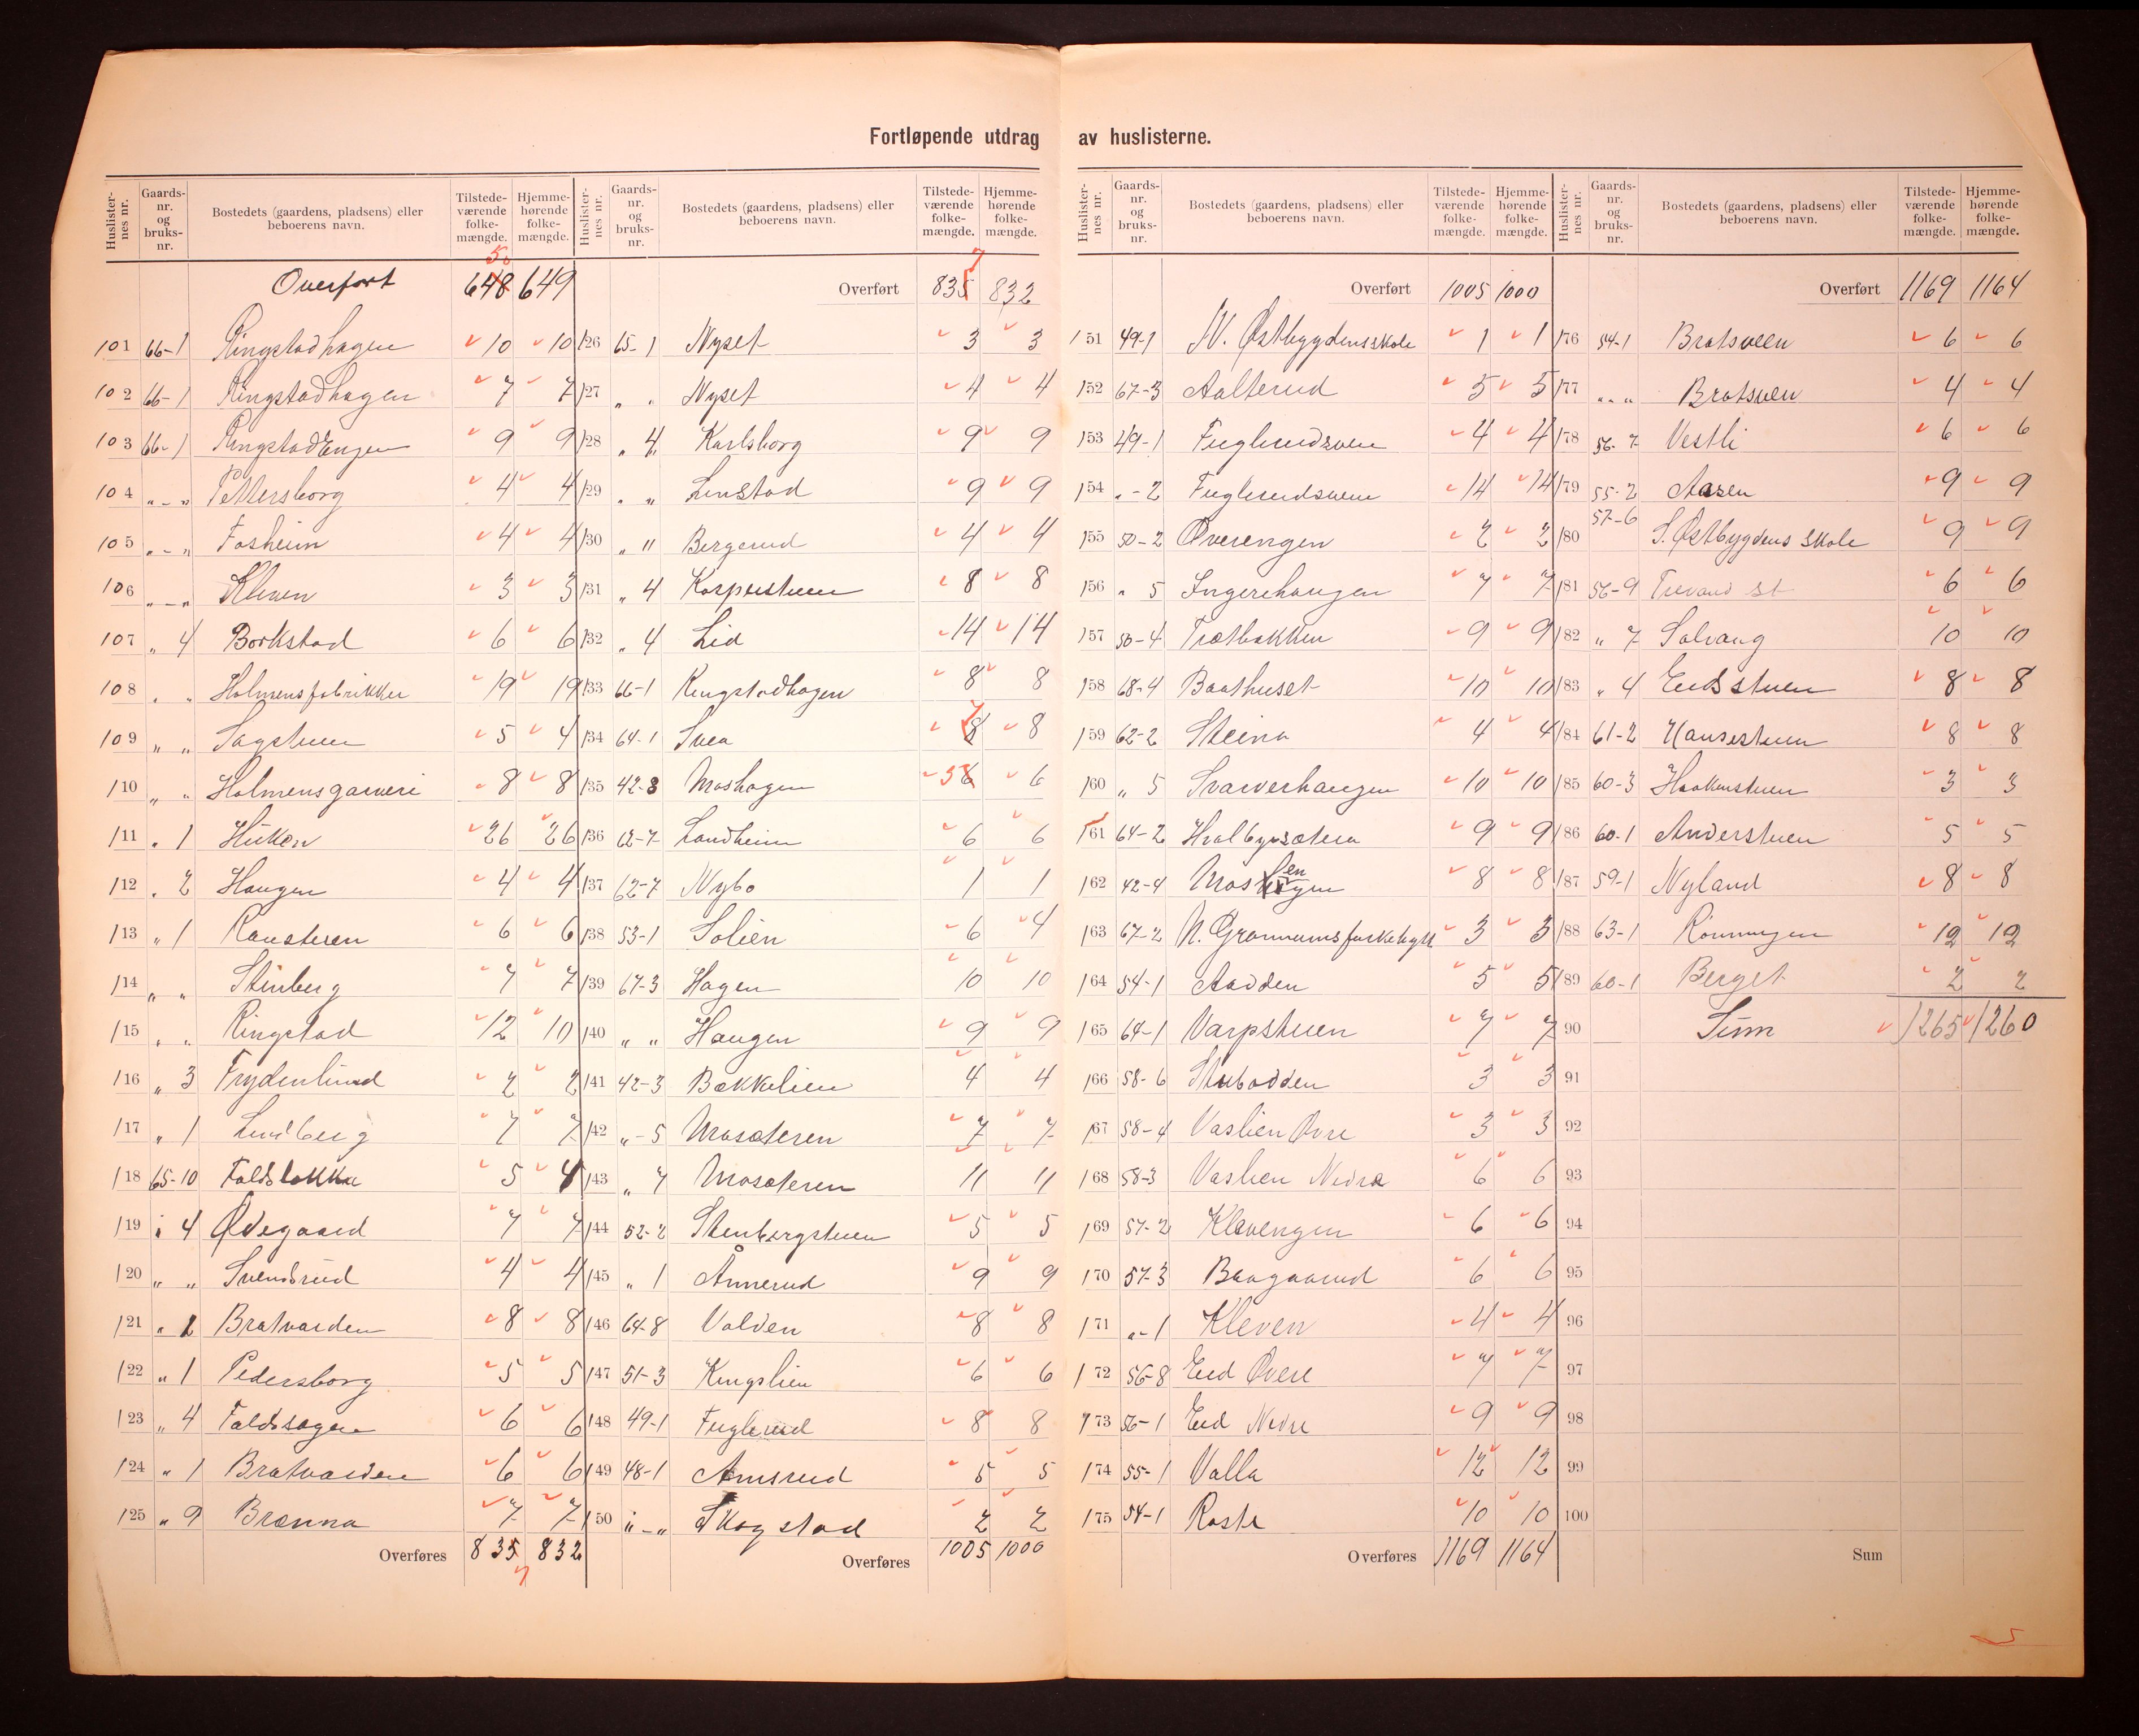 Fortløpende utdrag av huslisterne.
Huslister-nes nr. Gaards-nr. og bruks-nr. Bostedets (gaardens, pladsens) eller beboerens navn. Tilstede-værende folke-mængde. Hjemme-hørende folke-mængde.
Overført 648 649
101 66-1 Ringstadhagen 10 10
102 66-1 Ringstadhagen 7 7
103 66-1 RingstadEngen 9 9
104 „ - „ Pettersborg 4 4
105 „ - „ Fosheim 4 4
106 „ - „ Kleven 3 3
107 „ 4 Borkstad 6 6
108 „ „ Holmensfabrikker 19 19
109 „ „ Sagstuen 5 4
110 „ „ Holmensgarveri 8 8
111 „ 1 26 26
112 „ 2 Haugen 4 4
113 „ 1 6 6
114 „ „ Stenberg 7 7
115 „ „ Ringstad 12 10
116 „ 3 Frydenlund 2 2
117 „ 1 Lundberg 7 7
118 65-10 Faldsløkka 5 4
119 „ 4 Ødegaard 7 7
120 „ „ Svendsrud 4 4
121 „ 1 Bratvarden 8 8
122 „ 1 Pedersborg 5 5
123 „ 4 Faldsagen 6 6
124 „ 1 Bratvarden 6 6
125 „ 9 Brænna 7 7
Overføres 835 7 832
Huslister-nes nr. Gaards-nr. og bruks-nr. Bostedets (gaardens, pladsens) eller beboerens navn. Tilstede-værende folke-mængde. Hjemme-hørende folke-mængde.
Overført 835 7 832
126 65-1 Nyset 3 3
127 „ „ Nyset 4 4
128 „ 4 Karlsborg 9 9
129 „ „ Lenstad 9 9
130 „ „ Bergerud 4 4
131 „ 4 Kasperstuen 8 8
132 „ 4 Lid 14 14
133 66-1 Ringstadhagen 8 8
134 64-1 Svea 8 7 8
135 42-8 Moshagen 5 6 6
136 62-7 Landheim 6 6
137 62-7 Nybo 1 1
138 53-1 Solien 6 4
139 67-3 Hagen 10 10
140 „ „ Haugen 9 9
141 42-3 Bækkelien 4 4
142 „ - 5 Mosæteren 7 7
143 „ 7 Mosæteren 11 11
144 52-2 Stenbergstuen 5 5
145 „ 1 Ånnerud 9 9
146 64-8 Volden 8 8
147 51-3 Kingslien 6 6
148 49-1 Fuglerud 8 8
149 48-1 Amsrud 5 5
150 „ - „ Skogstad 2 2
Overføres 1005 1000
Huslister-nes nr. Gaards-nr. og bruks-nr. Bostedets (gaardens, pladsens) eller beboerens navn. Tilstede-værende folke-mængde. Hjemme-hørende folke-mængde.
Overført 1005 1000
151 49-1 N. Østbygdensskole 1 1
152 67-3 Aalterud 5 5
153 49-1 Fuglerudsveen 4 4
154 „ - 2 Fuglerudsveen 14 14
155 50-2 Øverengen 2 2
156 „ 5 Ingerehaugen 7 7
157 50-4 Trætbakken 9 9
158 68-4 Baathuset 10 10
159 62-2 Steina 4 4
160 „ 5 Svarverhaugen 10 10
161 64-2 Hvalbysætera 9 9
162 42-4 8 8
163 67-2 3 3
164 54-1 Aadden 5 5
165 64-1 Varpstuen 7 7
166 58-6 Stubadden 3 3
167 58-4 Vaslien Øvre 3 3
168 58-3 Vaslien Nedra 6 6
169 57-2 Klevengen 6 6
170 57-3 Baagaarud 6 6
171 „ - 1 Kleven 4 4
172 56-8 Eid Øvre 7 7
173 56-1 Eid Nedre 9 9
174 55-1 Valla 12 12
175 54-1 Roste 10 10
Overføres 1169 1164
Huslister-nes nr. Gaards-nr. og bruks-nr. Bostedets (gaardens, pladsens) eller beboerens navn. Tilstede-værende folke-mængde. Hjemme-hørende folke-mængde.
Overført 1169 1164
176 54-1 Bratsveen 6 6
177 „ - „ Bratsveen 4 4
178 56-7 Vestli 6 6
179 55-2 Aasen 9 9
180 57-6 S. Østbygdens skole 9 9
181 56-9 Trevand st 6 6
182 „ 7 Solvang 10 10
183 „ 4 Eidsstuen 8 8
184 61-2 Hansestuen 8 8
185 60-3 Haakenstuen 3 3
186 60-1 Anderstuen 5 5
187 59-1 Nyland 8 8
188 63-1 Rönningen 12 12
189 60-1 Berget 2 2
90 Sum 1265 1260
91
92
93
94
95
96
97
98
99
100
Sum